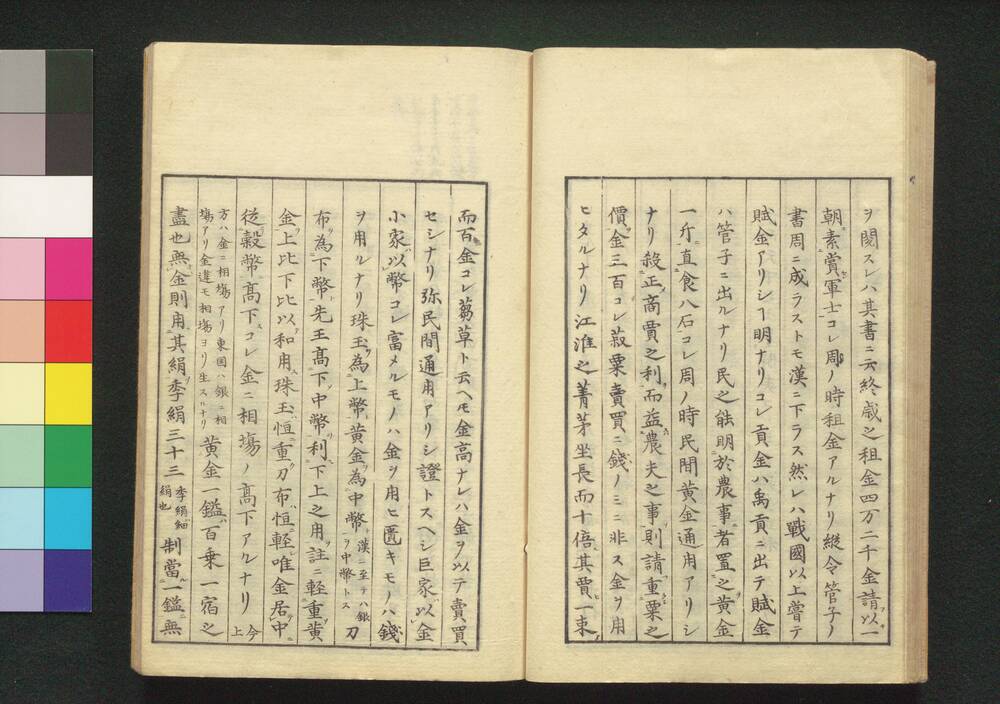 ヲ閲スレハ其書ニ云終歳之租金四万二千金請以一
朝素賞軍士コレ周ノ時租金アルナリ縱令管子ノ
書周ニ成ラストモ漢ニ下ラス然レハ戰國以上嘗テ
賦金アリシヿ明ナリコレ貢金ハ禹貢ニ出テ賦金
ハ管子ニ出ルナリ民之能明於農事者置之黄金
一斤直食八石コレ周ノ時民間黄金通用アリシ
ナリ殺正商賈之利而益農夫之事則請重粟之
價金三百コレ菽粟賣買ニ錢ノミニ非ス金ヲ用
ヒタルナリ江淮之菁茅坐長而十倍其賈一束
而百金コレ蒭草ト云ヘモ金高ナレハ金ヲ以テ賣買
セシナリ弥民間通用アリシ證トスヘシ巨家以金
小家以幣コレ富メルモノハ金ヲ用ヒ匱キモノハ錢
ヲ用ルナリ珠玉為上幣黄金為中幣漢ニ至テハ銀ヲ中幣トス刀
布為下幣先王高下中幣利下上之用註ニ輕重黄
金上比下比以和用珠玉恒重刀布恒輕唯金居中
從穀幣高下コレ金ニ相塲ノ高下アルナリ今上
方ハ金ニ相塲アリ東国ハ銀ニ相塲アリ金違モ相塲ヨリ生スルナリ黄金一鎰百乗一宿之
盡也無金則用其絹季絹三十三季絹細絹也制當一鎰無